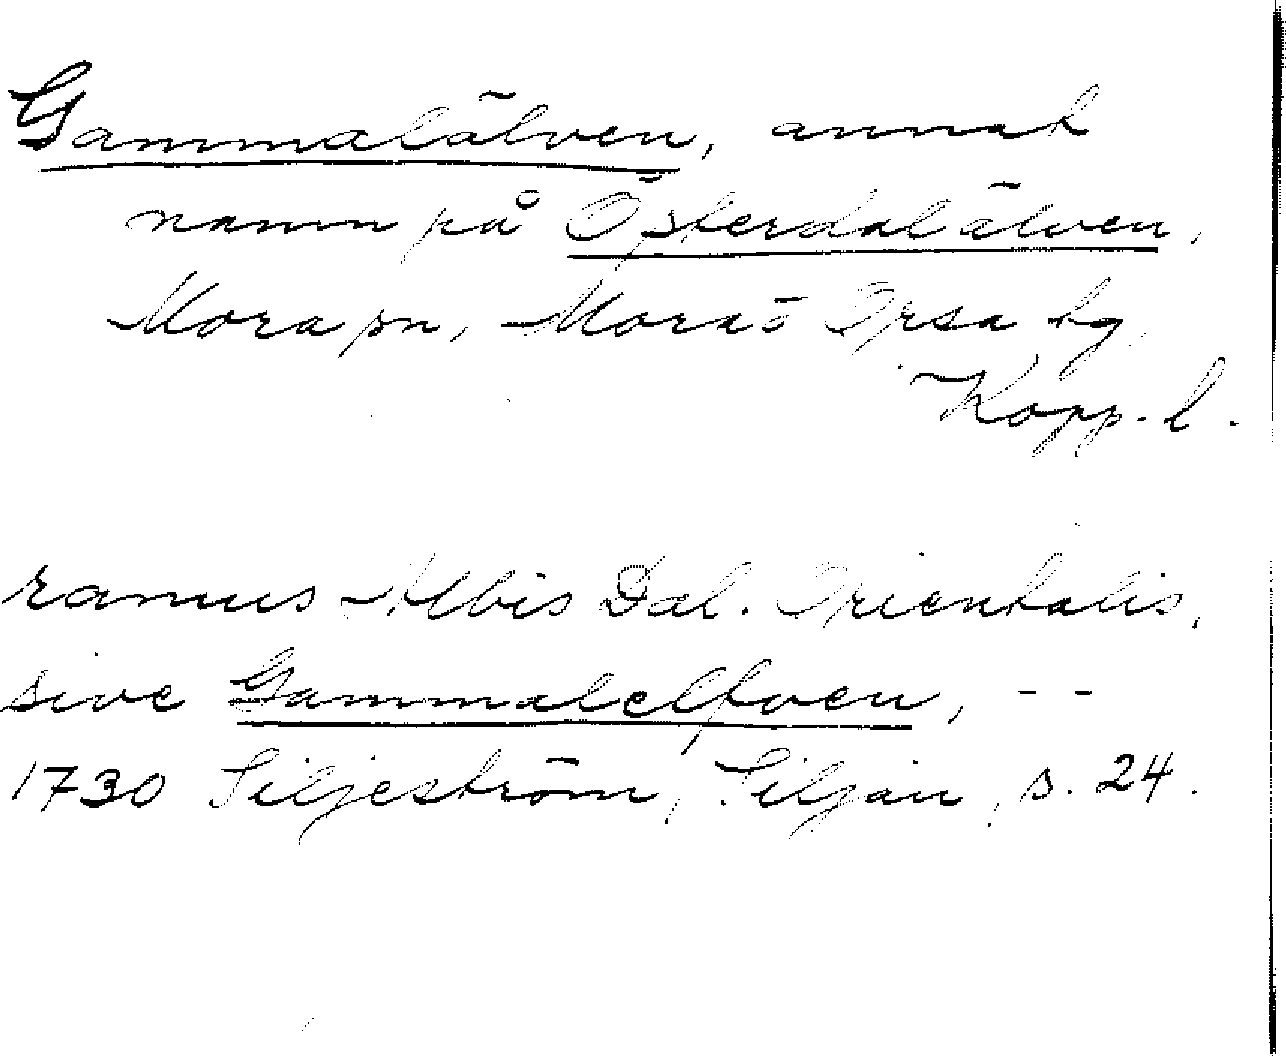 Gammalälven, annat
namn på Österdalälven,
Mora sn, Mora o Orsa tg,
Kopp. l.
ramus Albis Dal. Orientalis,
sive Gammalelfven, --
1730 Siljeström, Siljan, s. 24.